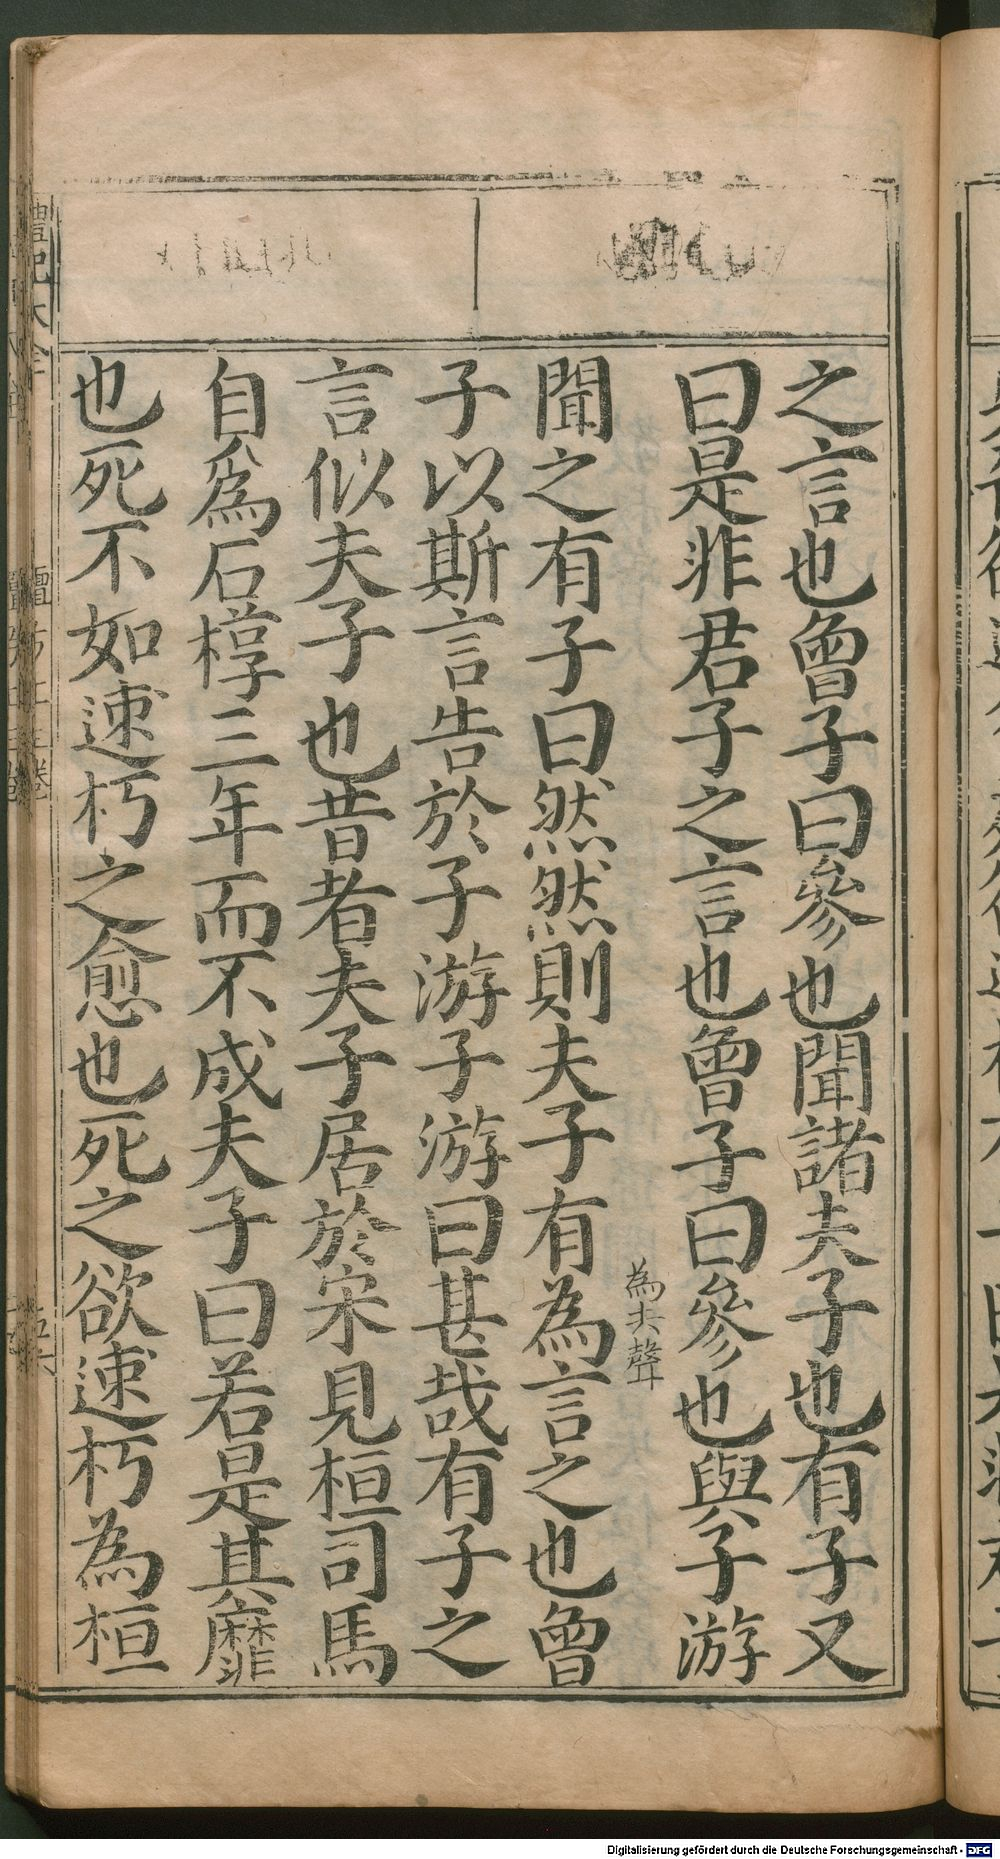 之言也曾子曰參也聞諸夫子也有子又
曰是非君子之言也曾子曰參也與子游
為去聲
聞之有子曰然然則夫子有為言之也曾
子以斯言告於子游子游曰甚哉有子之
言似夫子也昔者夫子居於宋見桓司馬
自爲石椁三年而不成夫子曰若是其靡
也死不如速朽之愈也死之欲速朽為桓
禮記大全
檀弓上三卷
Digitalisierung gefördert durch die Deutsche Forschungsgemeinschaft - DFG